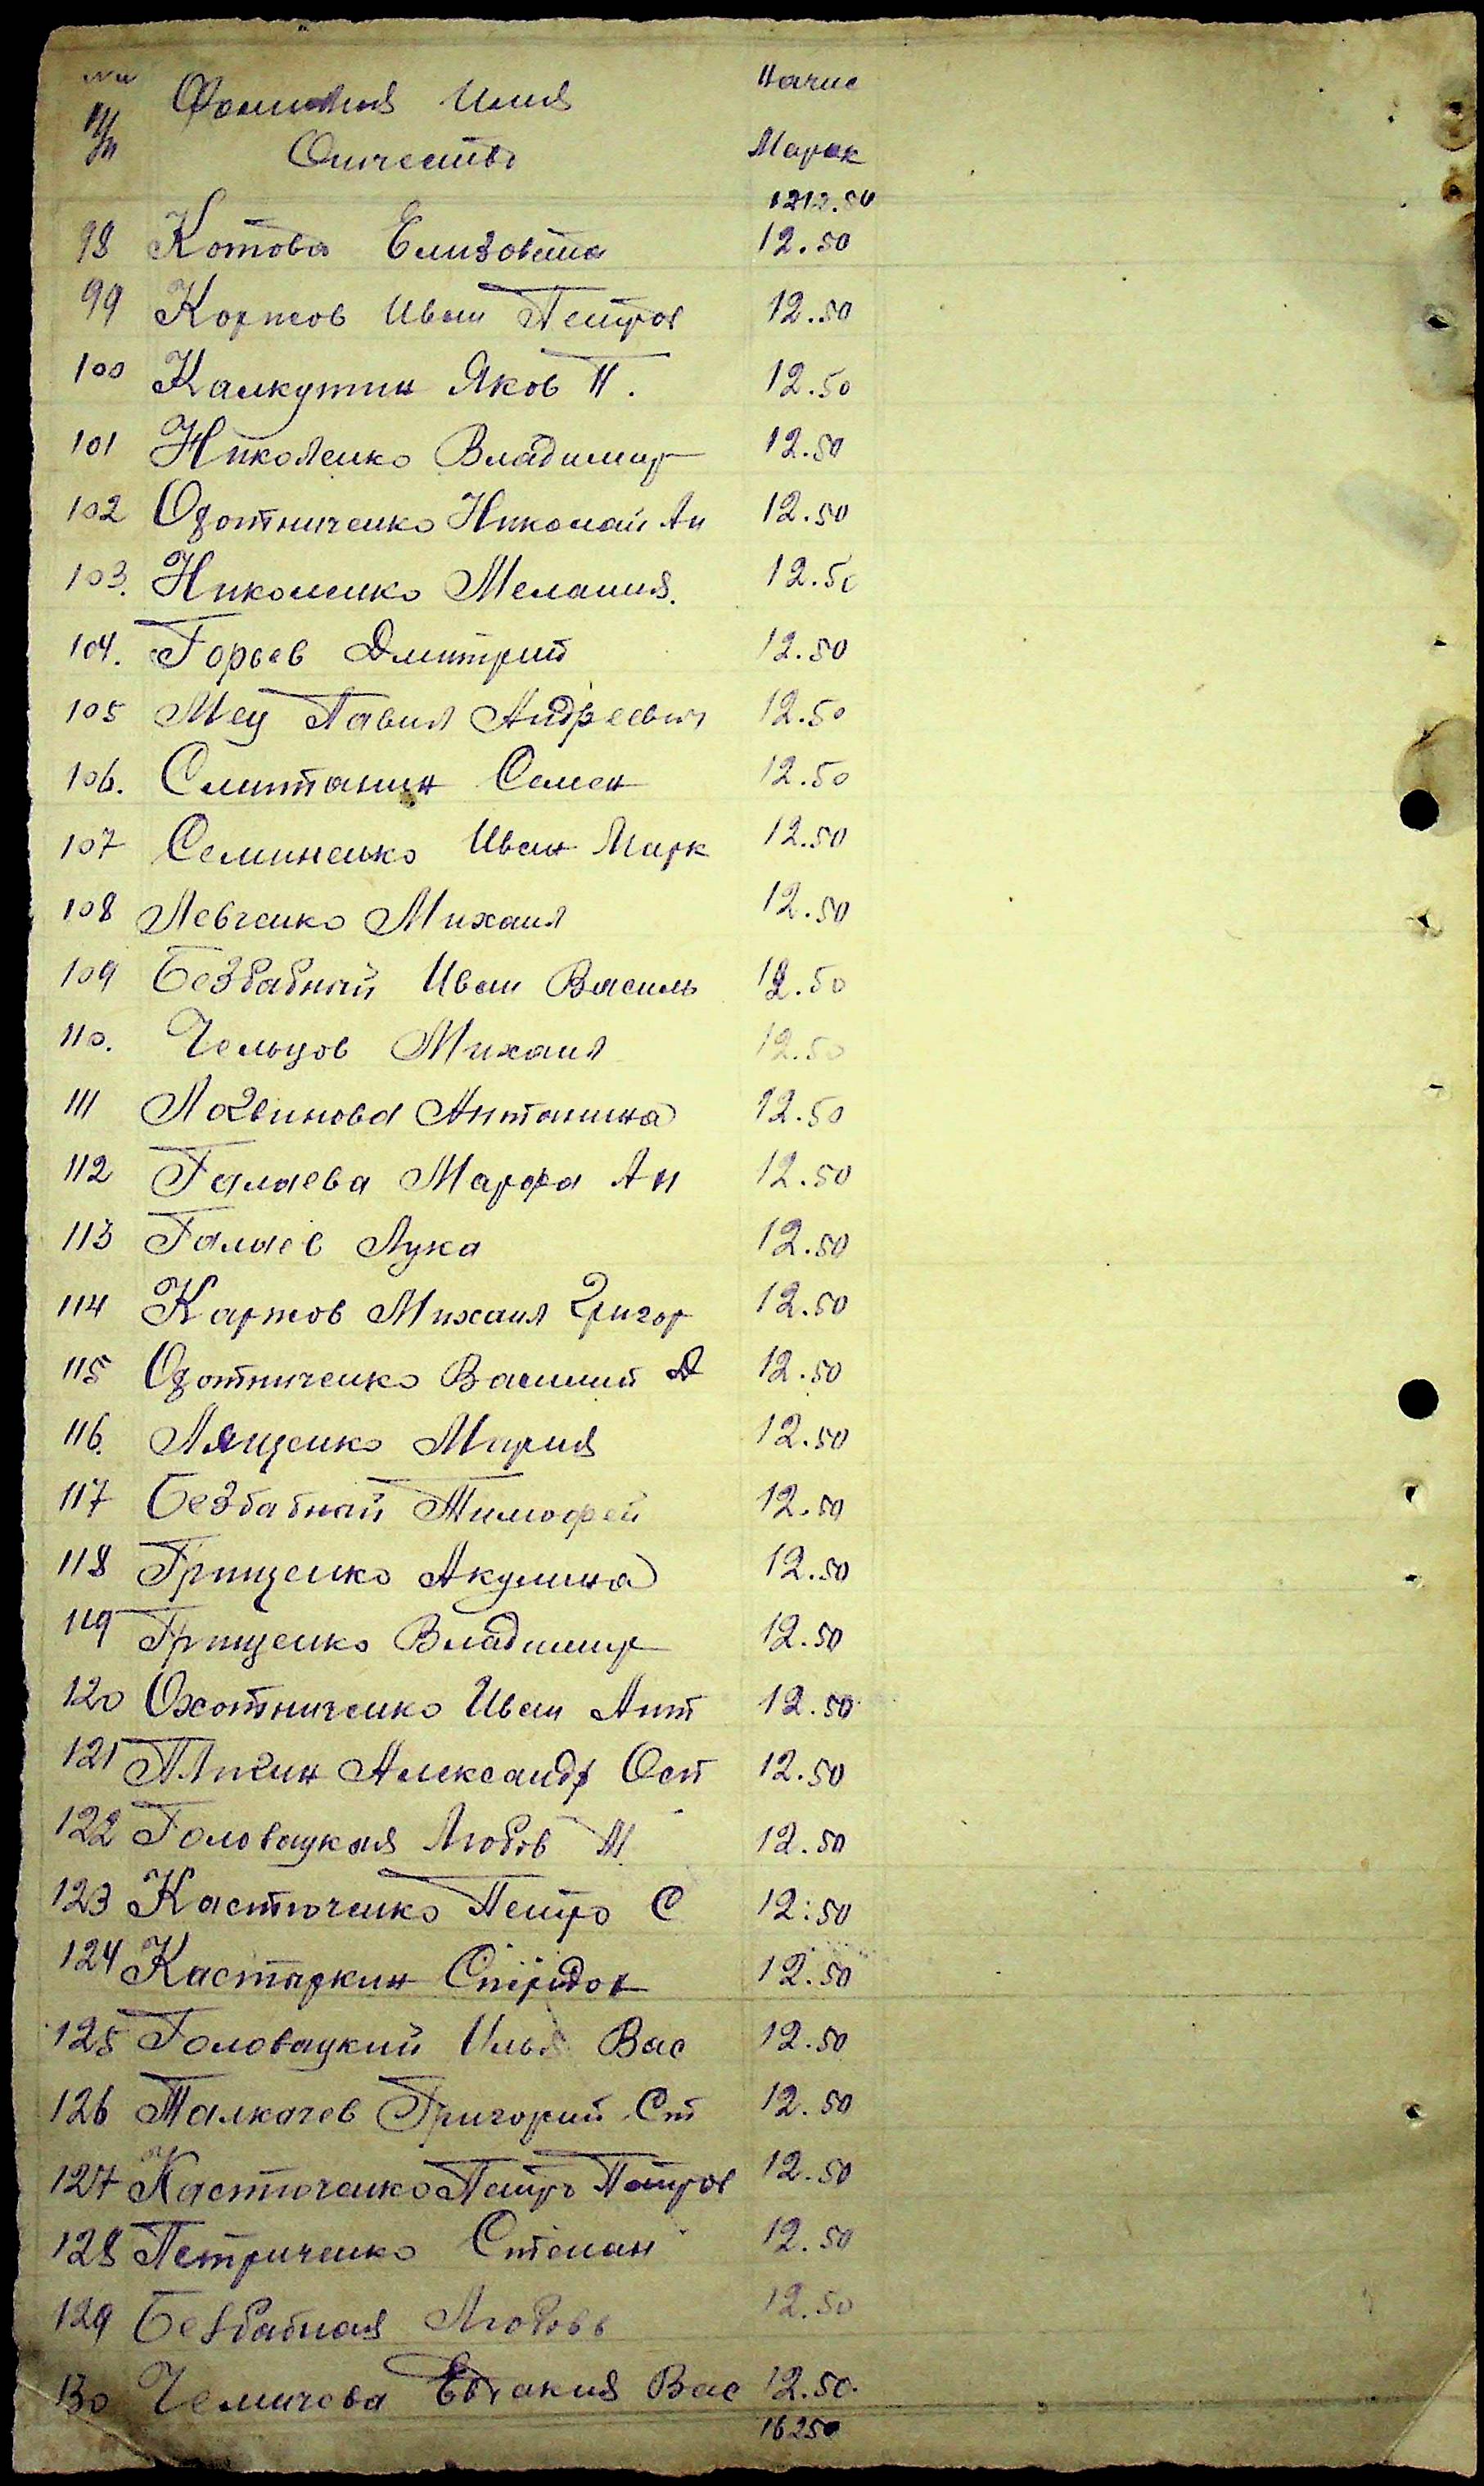 №№ Фамилия Имя Начис
п/п Отчество Марок
1212.50
98 Котова Елизовета 12.50
99 Коржов Иван Петров 12.50
100 Калкутин Яков П. 12.50
101 Николенко Владимир 12.50
102 Охотниченко Николай Ан 12.50
103. Николенко Мелания. 12.50
104. Горбев Дмитрий 12.50
105 Мец Павил Андреевич 12.50
106. Смитанин Семен 12.50
107 Семиненко Иван Марк 12.50
108 Левченко Михаил 12.50
109 Безбабний Иван Василь 12.50
110. Чельцов Михаил 12.50
111 Логвинова Антонина 12.50
112 Галаева Марфа Ан 12.50
113 Галаев Лука 12.50
114 Каржов Михаил Григор 12.50
115 Охотниченко Василий А 12.50
116. Лященко Мария 12.50
117 Безбабнай Тимофей 12.50
118 Грищенко Акулина 12.50
119 Грищенко Владимир 12.50
120 Охотниченко Иван Ант 12.50
121 Плигин Александр Осп 12.50
122 Головацкая Любов М 12.50
123 Кастюченко Петро С 12:50
124 Кастаркин Спиридон 12.50
125 Головацкий Илья Вас 12.50
126 Талкачев Григорий Ст 12.50
127 Кастюченко Петръ Петров 12.50
128 Петриченко Степан 12.50
129 Безбабная Любовь 12.50
130 Чемичева Евдакия Вас 12.50.
16250